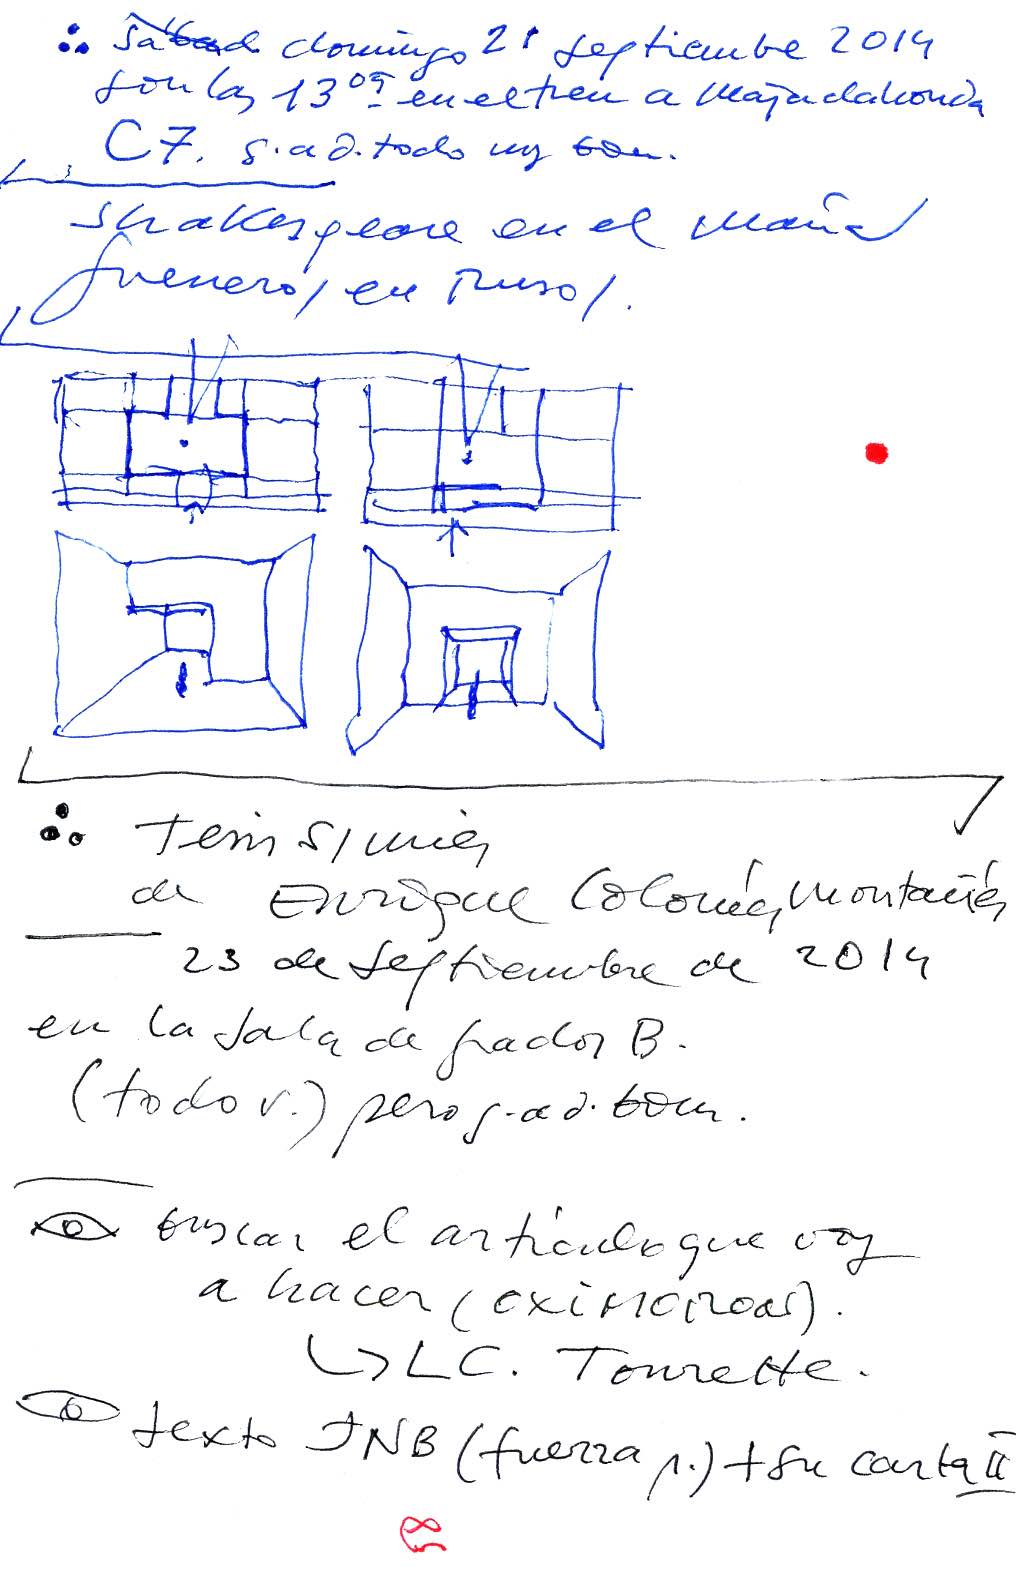 domingo 21 septiembre 2014
son las 13 09 en el tren a Majadahonda
C7. g.a.d. todo muy bien.
Shakespeare en el María
Guerrero / en Ruso /.
Tesis S/ mies
de Enrique Colomés Montañés
23 de septiembre de 2014
en la sala de grados B.
(todo v.) pero g.a.d. bien.
buscar el artículo que voy
a hacer (OXIMORON).
LC. Tourette.
texto JNB (fuerza p.) + su carta II